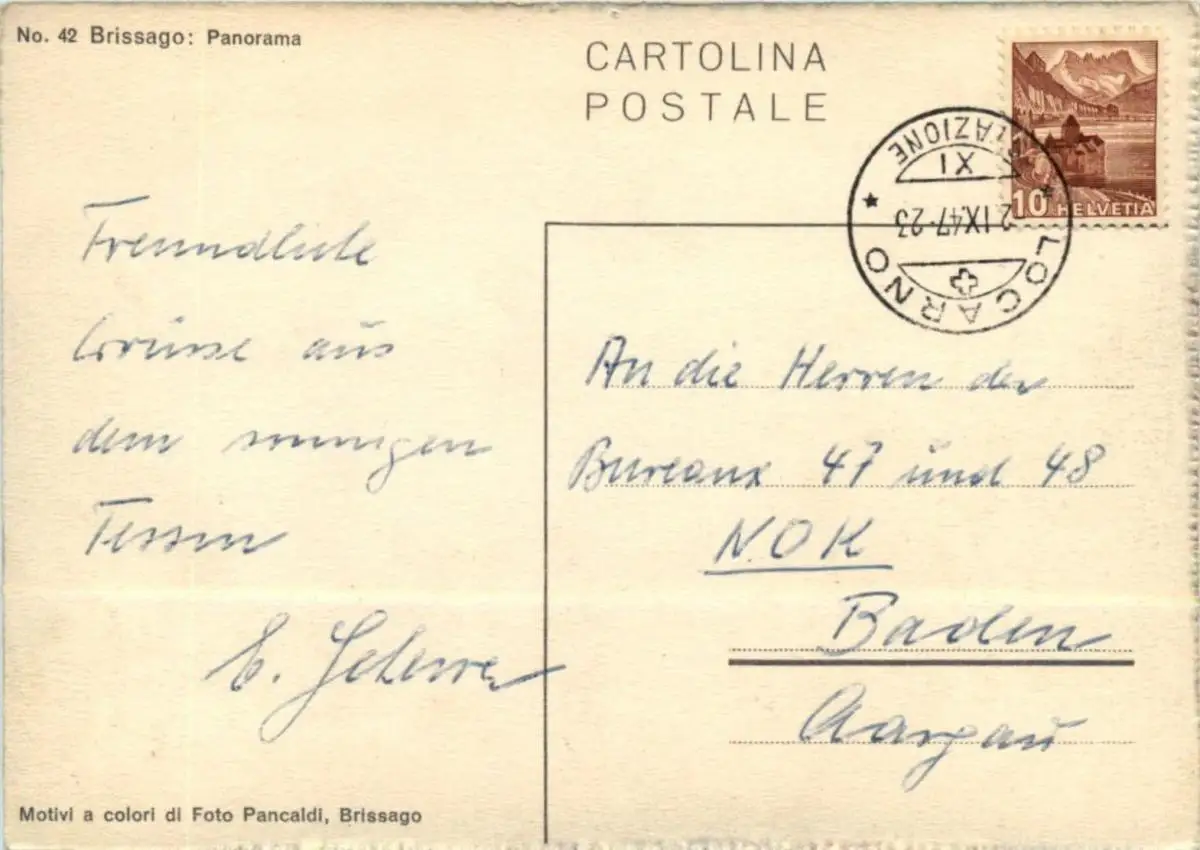 No. 42 Brissago: Panorama
CARTOLINA
POSTALE
10 HELVETIA
LOCARNO
XI
2.IX.47-23
Freundliche
Grüsse aus
dem sonnigen
Tessin
E.
An die Herren der
Bureaux 47 und 48
NOK
Baden
Aargau
Motivi a colori di Foto Pancaldi, Brissago